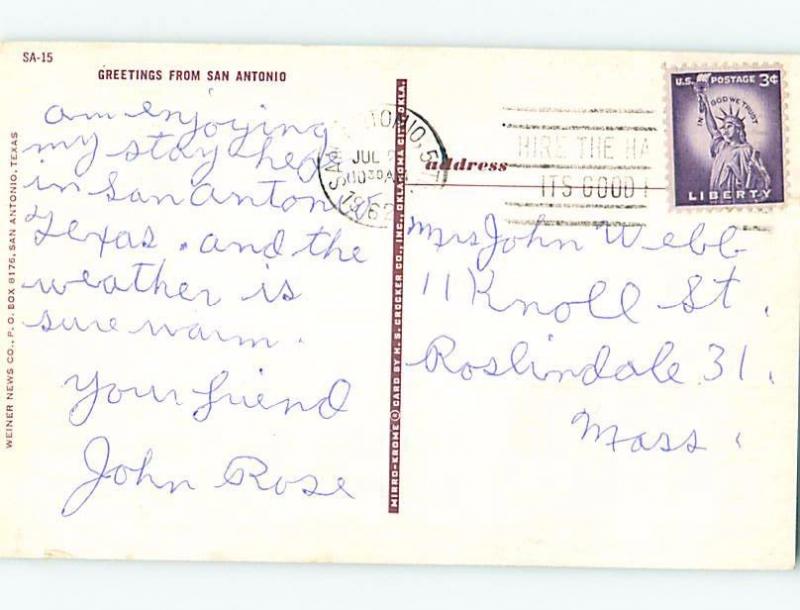 SA-15
GREETINGS FROM SAN ANTONIO
am enjoying
my stay here
in San Antonio
Texas. and the
weather is
sure warm.
Your friend
John Rose
WEINER NEWS CO., P. O. BOX 8176, SAN ANTONIO, TEXAS
MIRRO-KROME ® CARD BY H. S. CROCKER CO., INC., OKLAHOMA CITY, OKLA.
JUL
1962
address
HIRE THE HA
ITS GOOD
U.S. POSTAGE 3¢
IN GOD WE TRUST
LIBERTY
Mrs John Webb
11 Knoll St.
Roslindale 31.
Mass.